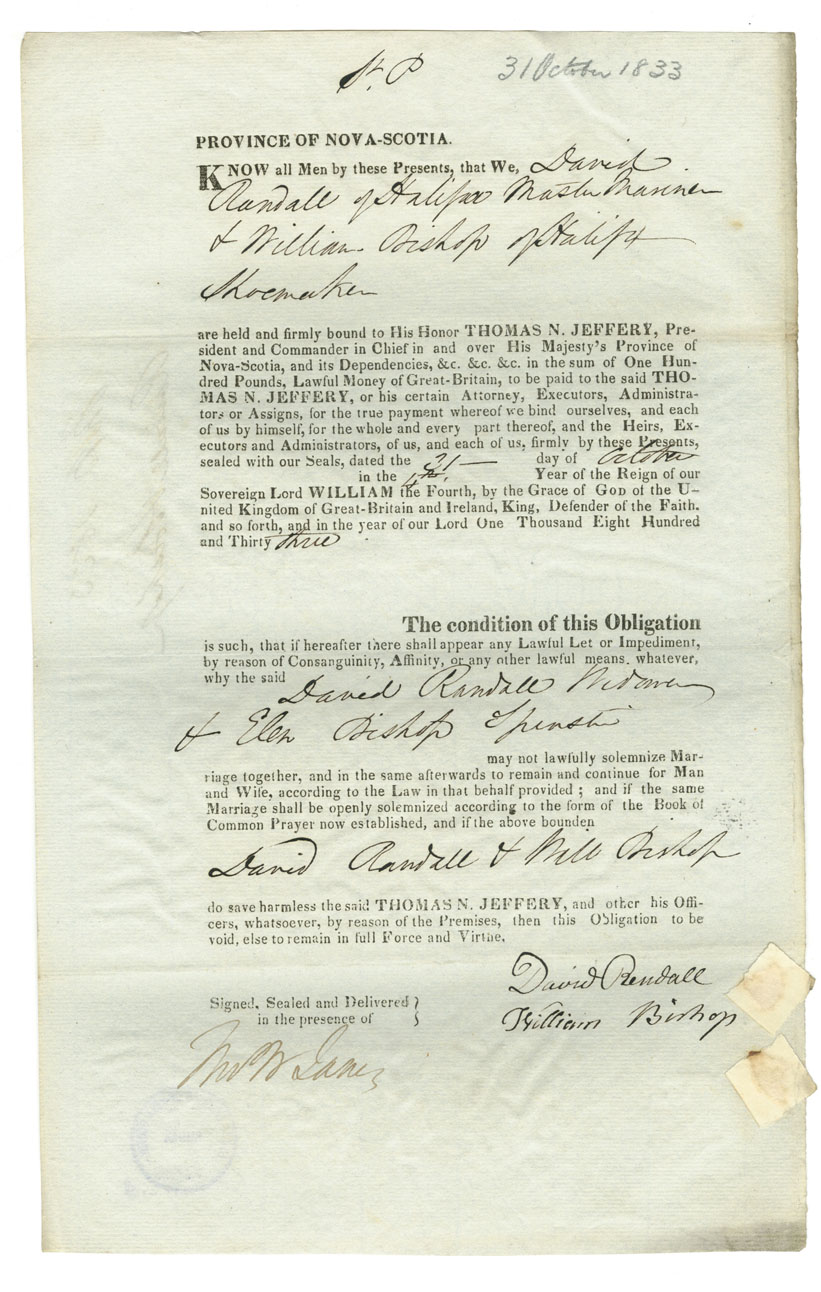 St. P
31 October 1833
PROVINCE OF NOVA-SCOTIA.
KNOW all Men by these Presents, that We, David
Randall of Halifax Master Mariner
& William Bishop of Halifx
Shoemaker
are held and firmly bound to His Honor THOMAS N. JEFFERY, Pre-
sident and Commander in Chief in and over His Majesty's Province of
Nova-Scotia, and its Dependencies, &c. &c. &c. in the sum of One Hun-
dred Pounds, Lawful Money of Great-Britain, to be paid to the said THO-
MAS N. JEFFERY, or his certain Attorney, Executors, Administra-
tors or Assigns, for the true payment whereof we bind ourselves, and each
of us by himself, for the whole and every part thereof, and the Heirs, Ex-
ecutors and Administrators, of us, and each of us, firmly by these Presents,
sealed with our Seals, dated the 31 day of October
in the 4th. Year of the Reign of our
Sovereign Lord WILLIAM the Fourth, by the Grace of GOD of the U-
nited Kingdom of Great-Britain and Ireland, King, Defender of the Faith.
and so forth, and in the year of our Lord One Thousand Eight Hundred
and Thirty three
The condition of this Obligation
is such, that if hereafter there shall appear any Lawful Let or Impediment,
by reason of Consanguinity, Affinity, or any other lawful means. whatever,
why the said
David Randall Widower
& Elen Bishop Spinster
may not lawfully solemnize Mar-
riage together, and in the same afterwards to remain and continue for Man
and Wife, according to the Law in that behalf provided ; and if the same
Marriage shall be openly solemnized according to the form of the Book of
Common Prayer now established, and if the above bounden
David Randall & Will Bishop
do save harmless the said THOMAS N. JEFFERY, and other his Offi-
cers, whatsoever, by reason of the Premises, then this Obligation to be
void, else to remain in full Force and Virthe.
David Rendall
William Bishop
Signed, Sealed and Delivered
in the presence of